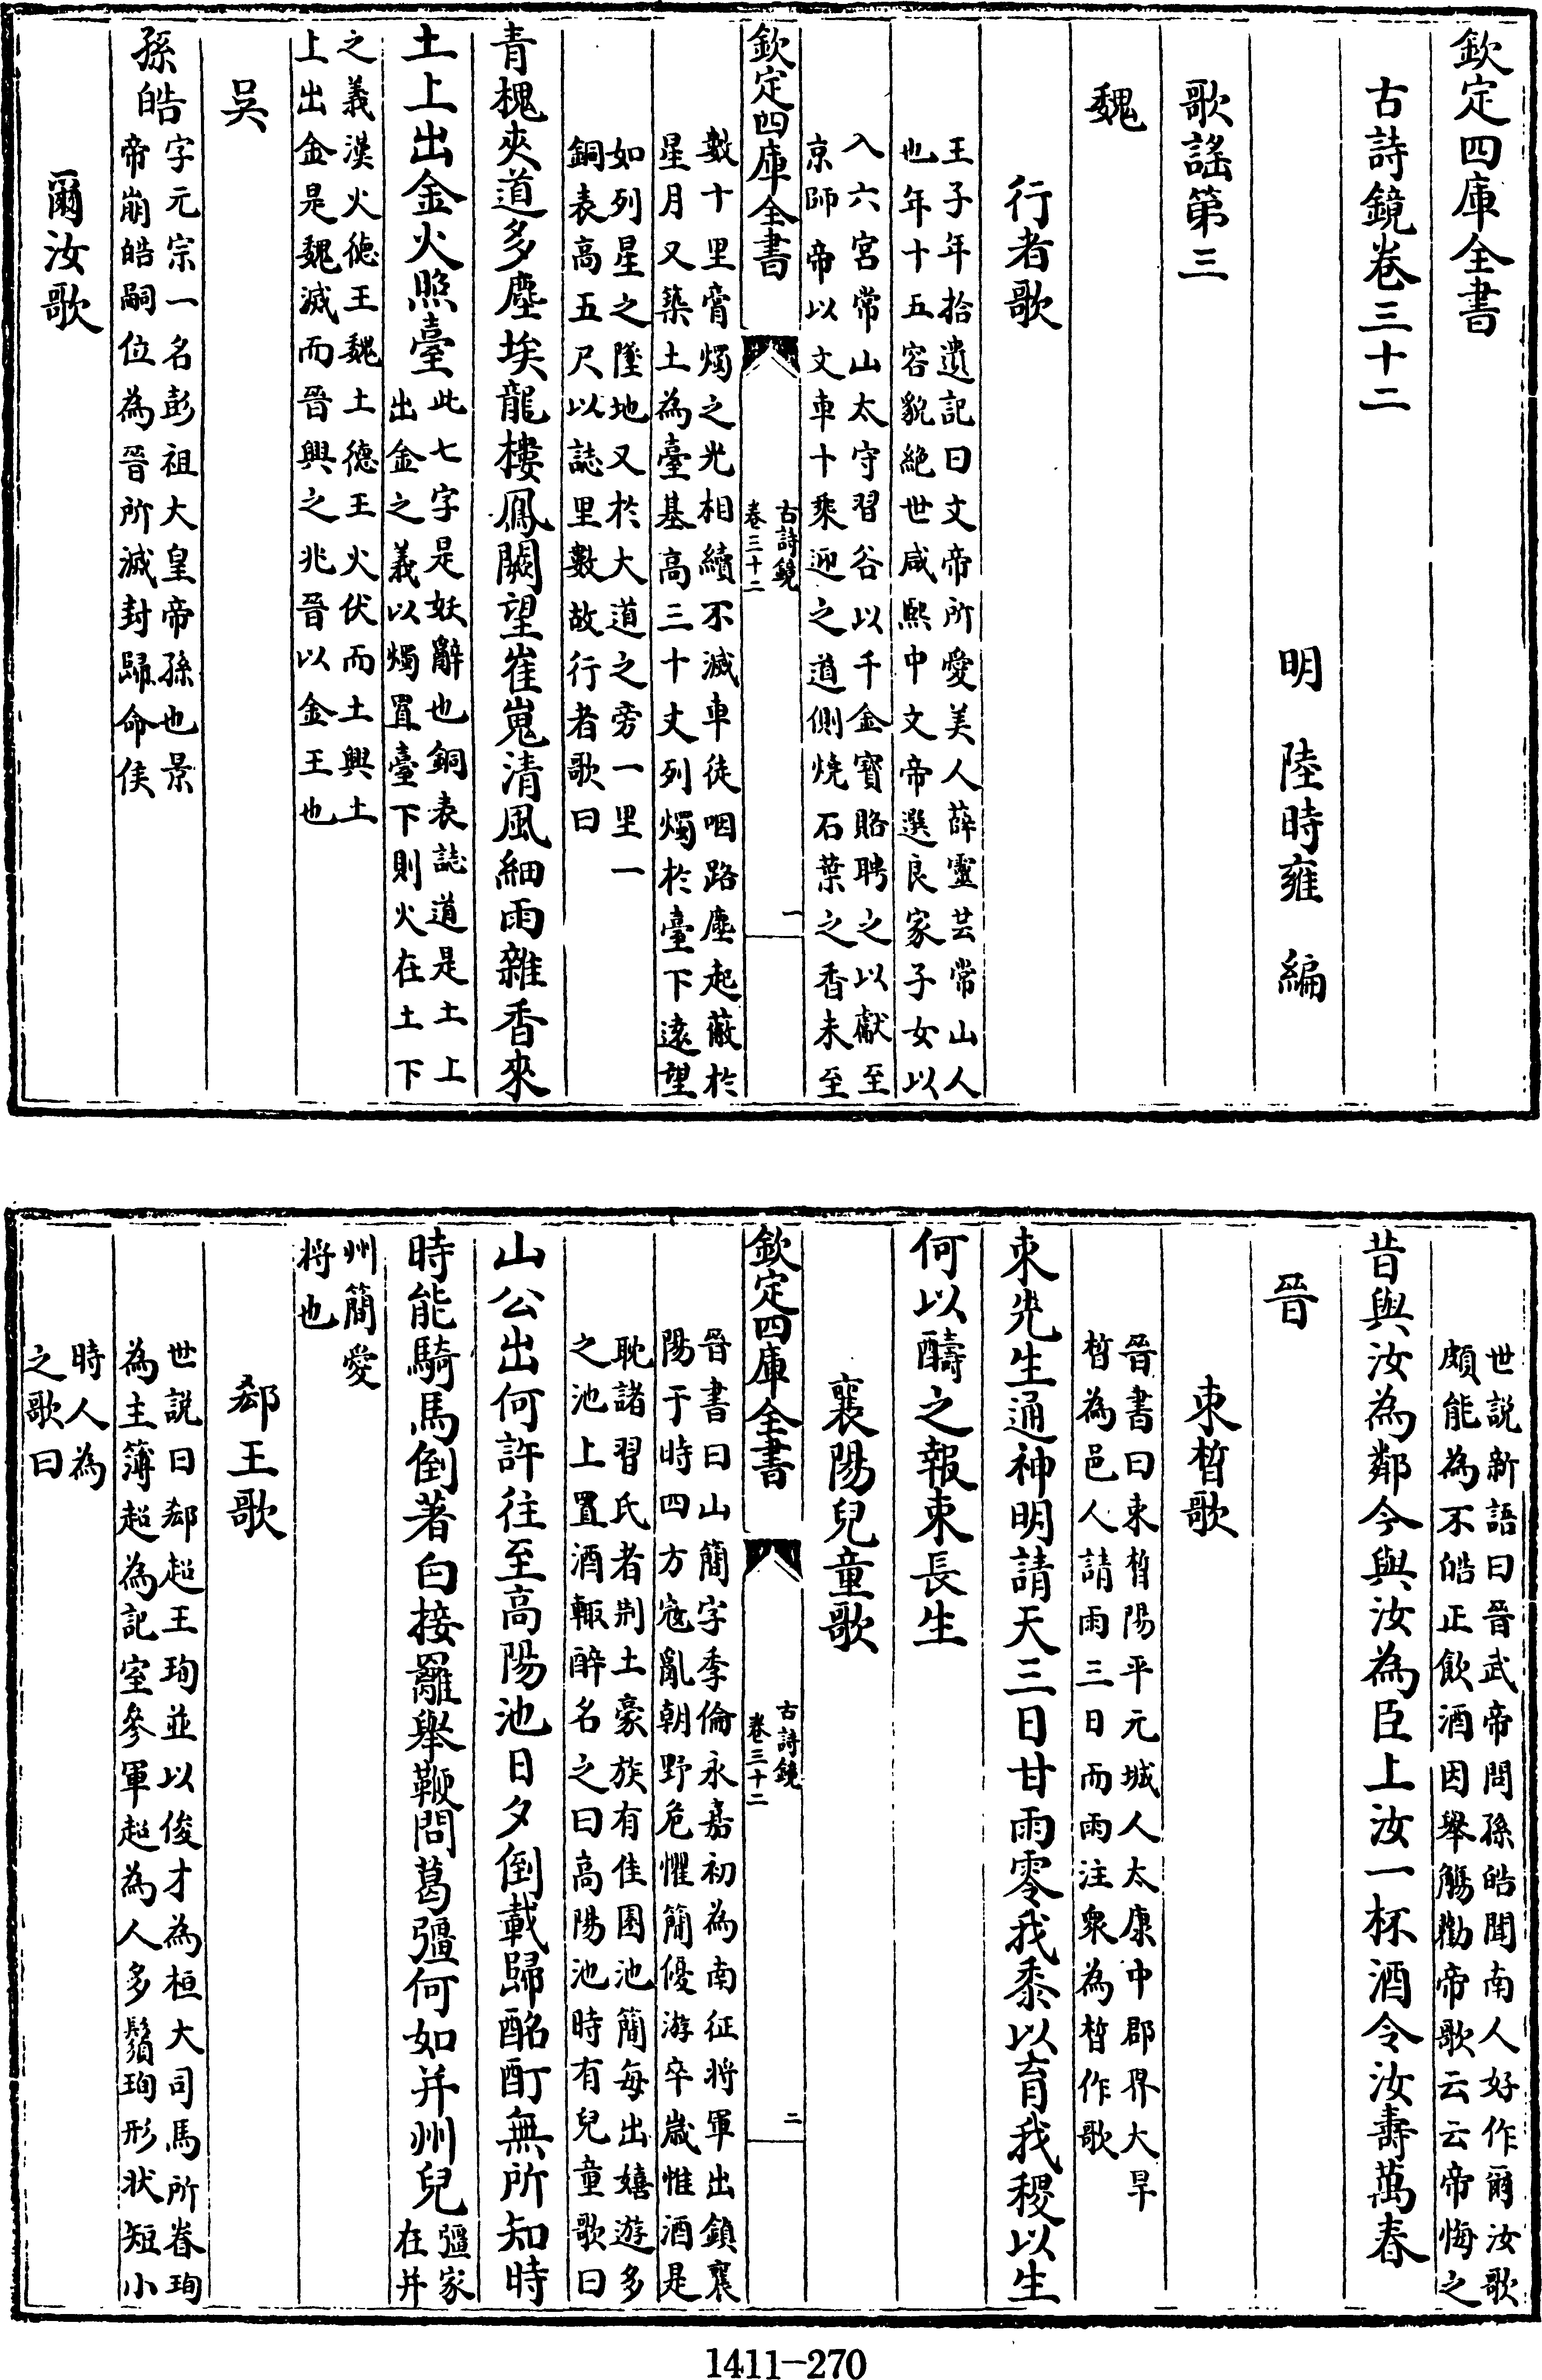 欽定四庫全書
古詩鏡卷三十二
明　陸時雍　編
歌謡第三
魏
行者歌
王子年拾遺記曰文帝所愛美人薛靈芸常山人
也年十五容貌絶世咸熙中文帝選良家子女以
入六宫常山太守習谷以千金寳賂聘之以獻至
京師帝以文車十乘迎之道側燒石葉之香未至
欽定四庫全書
古詩鏡
卷三十二
一
數十里膏燭之光相續不滅車徒咽路塵起蔽於
星月又築土為臺基高三十丈列燭於臺下逺望
如列星之墜地又於大道之旁一里一
銅表高五尺以誌里數故行者歌曰
青槐夾道多塵埃龍樓鳳闕望崔嵬清風細雨雜香來
土上出金火照臺此七字是妖辭也銅表誌道是土上
出金之義以燭置臺下則火在土下
之義漢火德王魏土德王火伏而土興土
上出金是魏滅而晉興之兆晉以金王也
吳
孫皓字元宗一名彭祖大皇帝孫也景
帝崩皓嗣位為晉所滅封歸命侯
爾汝歌
世説新語曰晉武帝問孫皓聞南人好作爾汝歌
頗能為不皓正飲酒因舉觴勸帝歌云云帝悔之
昔與汝為鄰今與汝為臣上汝一杯酒令汝壽萬春
晉
束晳歌
晉書曰束晳陽平元城人太康中郡界大旱
晳為邑人請雨三日而雨注衆為晳作歌
束先生通神明請天三日甘雨零我黍以育我稷以生
何以醻之報束長生
襄陽兒童歌
晉書曰山簡字季倫永嘉初為南征將軍出鎮襄
陽于時四方宼亂朝野危懼簡優游卒歲惟酒是
欽定四庫全書
古詩鏡
卷三十二
二
耽諸習氏者荆土豪族有佳園池簡每出嬉遊多
之池上置酒輒醉名之曰高陽池時有兒童歌曰
山公出何許往至高陽池日夕倒載歸酩酊無所知時
時能騎馬倒著白接䍦舉鞭問葛彊何如并州兒彊家
在并
州簡愛
將也
郄王歌
世説曰郄超王珣並以俊才為桓大司馬所眷珣
為主簿超為記室參軍超為人多鬚珣形狀短小
時人為
之歌曰
1411—270